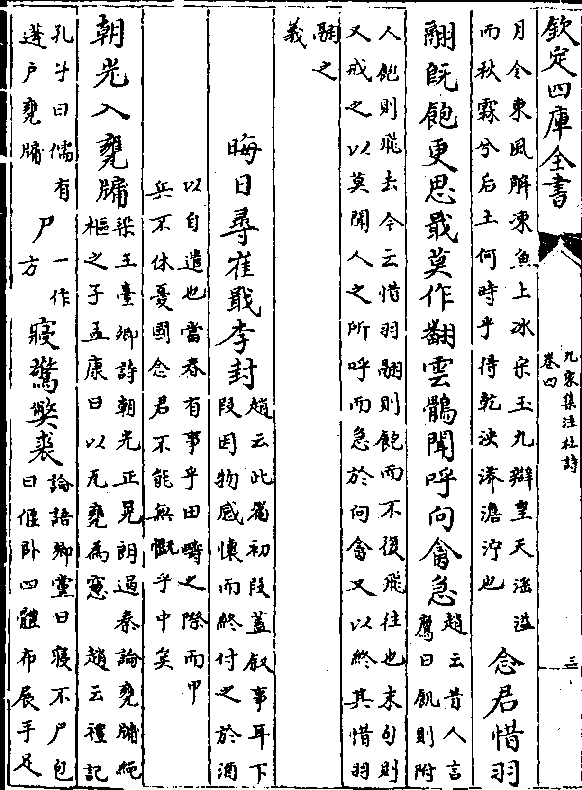 欽定四庫全書
九家集注杜詩
卷四
三
月令東風解凍魚上冰宋玉九辯皇天滛溢
而秋霖兮后土何時乎得乾泱漭澹濘也
念君惜羽
翮既飽更思戢莫作翻雲鶻聞呼向禽急
趙云昔人言
鷹曰飢則附
人飽則飛去今云惜羽翮則飽而不復飛往也末句則
又戒之以莫聞人之所呼而急於向禽又以終其惜羽
翮之
義
晦日尋崔戢李封
趙云此篇初段蓋叙事耳下
段因物感懷而終付之於酒
以自遣也當春有事乎田疇之際而甲
兵不休憂國念君不能無慨乎中矣
朝光入甕牖
梁王臺卿詩朝光正晃朗過秦論甕牖䋲
樞之子孟康曰以瓦甕為窻 趙云禮記
孔子曰儒有
蓬戶甕牖
尸
一作
方
寢驚弊裘
論語鄉黨曰寢不尸包
曰偃卧四體布展手足